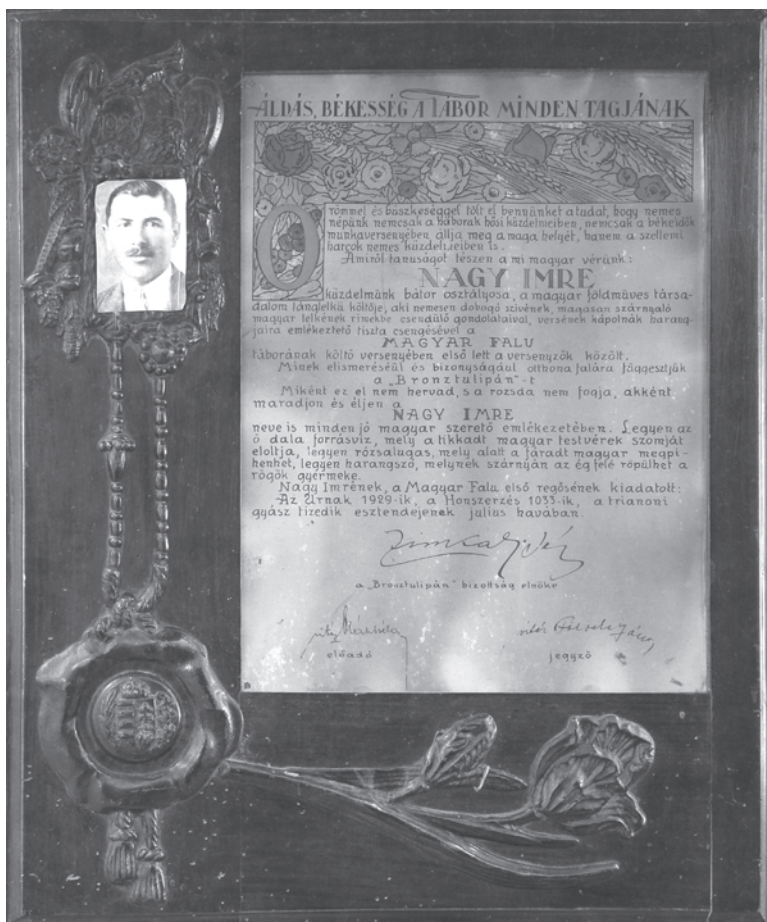 ÁLDÁS, BÉKESSÉG A TÁBOR MINDEN TAGJÁNAK
Örömmel és büszkeséggel tölt el bennünket a tudat, hogy nemes
népünk nemcsak a háborúk hősi küzdelmeiben, nemcsak a békeidők
munkaversenyében állja meg a maga helyét, hanem a szellemi
harcok nemes küzdelmeiben is.
Amiről tanuságot tészen a mi magyar vérünk:
NAGY IMRE
küzdelmünk bátor osztályosa, a magyar földműves társa-
dalom lánglelkű költője, aki nemesen dobogó szívének, magasan szárnyaló
magyar lelkének rimekbe csendülő gondolataival, versének kápolnák harang-
jaira emlékeztető tiszta csengésével a
MAGYAR FALU
táborának költő versenyében első lett a versenyzők között.
Minek elismeréséül és bizonyságául otthona falára függesztjük
a „Bronztulipán"-t
Miként ez el nem hervad, s a rozsda nem fogja, akként
maradjon és éljen a
NAGY IMRE
neve is minden jó magyar szerető emlékezetében. Legyen az
ő dala forrásvíz, mely a tikkadt magyar testvérek szomját
eloltja, legyen rózsalugas, mely alatt a fáradt magyar megpi-
henhet, legyen harangszó, melynek szárnyán az ég felé röpülhet a
rögök gyermeke.
Nagy Imrének, a Magyar Falu első regősének kiadatott:
Az Úrnak 1929-ik, a Honszerzés 1033-ik, a trianoni
gyász tizedik esztendejének július havában.
a „Bronztulipán" bizottság elnöke
előadó
jegyző